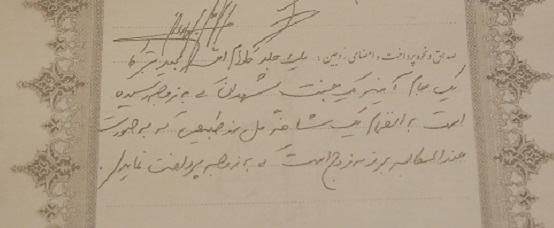 صداق و نحوه پرداخت و امضای زوجین: یک جلد کلام الله مجید تبرکا
یک جام آینه یک جفت شمعدان که به زوجه رسیده
است به انضمام یک شاخه گل که به صورت
عندالمطالبه بر ذمه زوج است که به زوجه پرداخت نماید